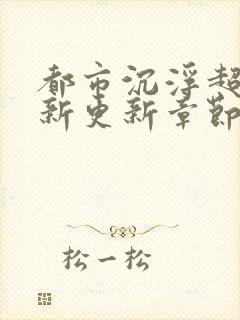 都市沉浮超
新更新章节
松一松